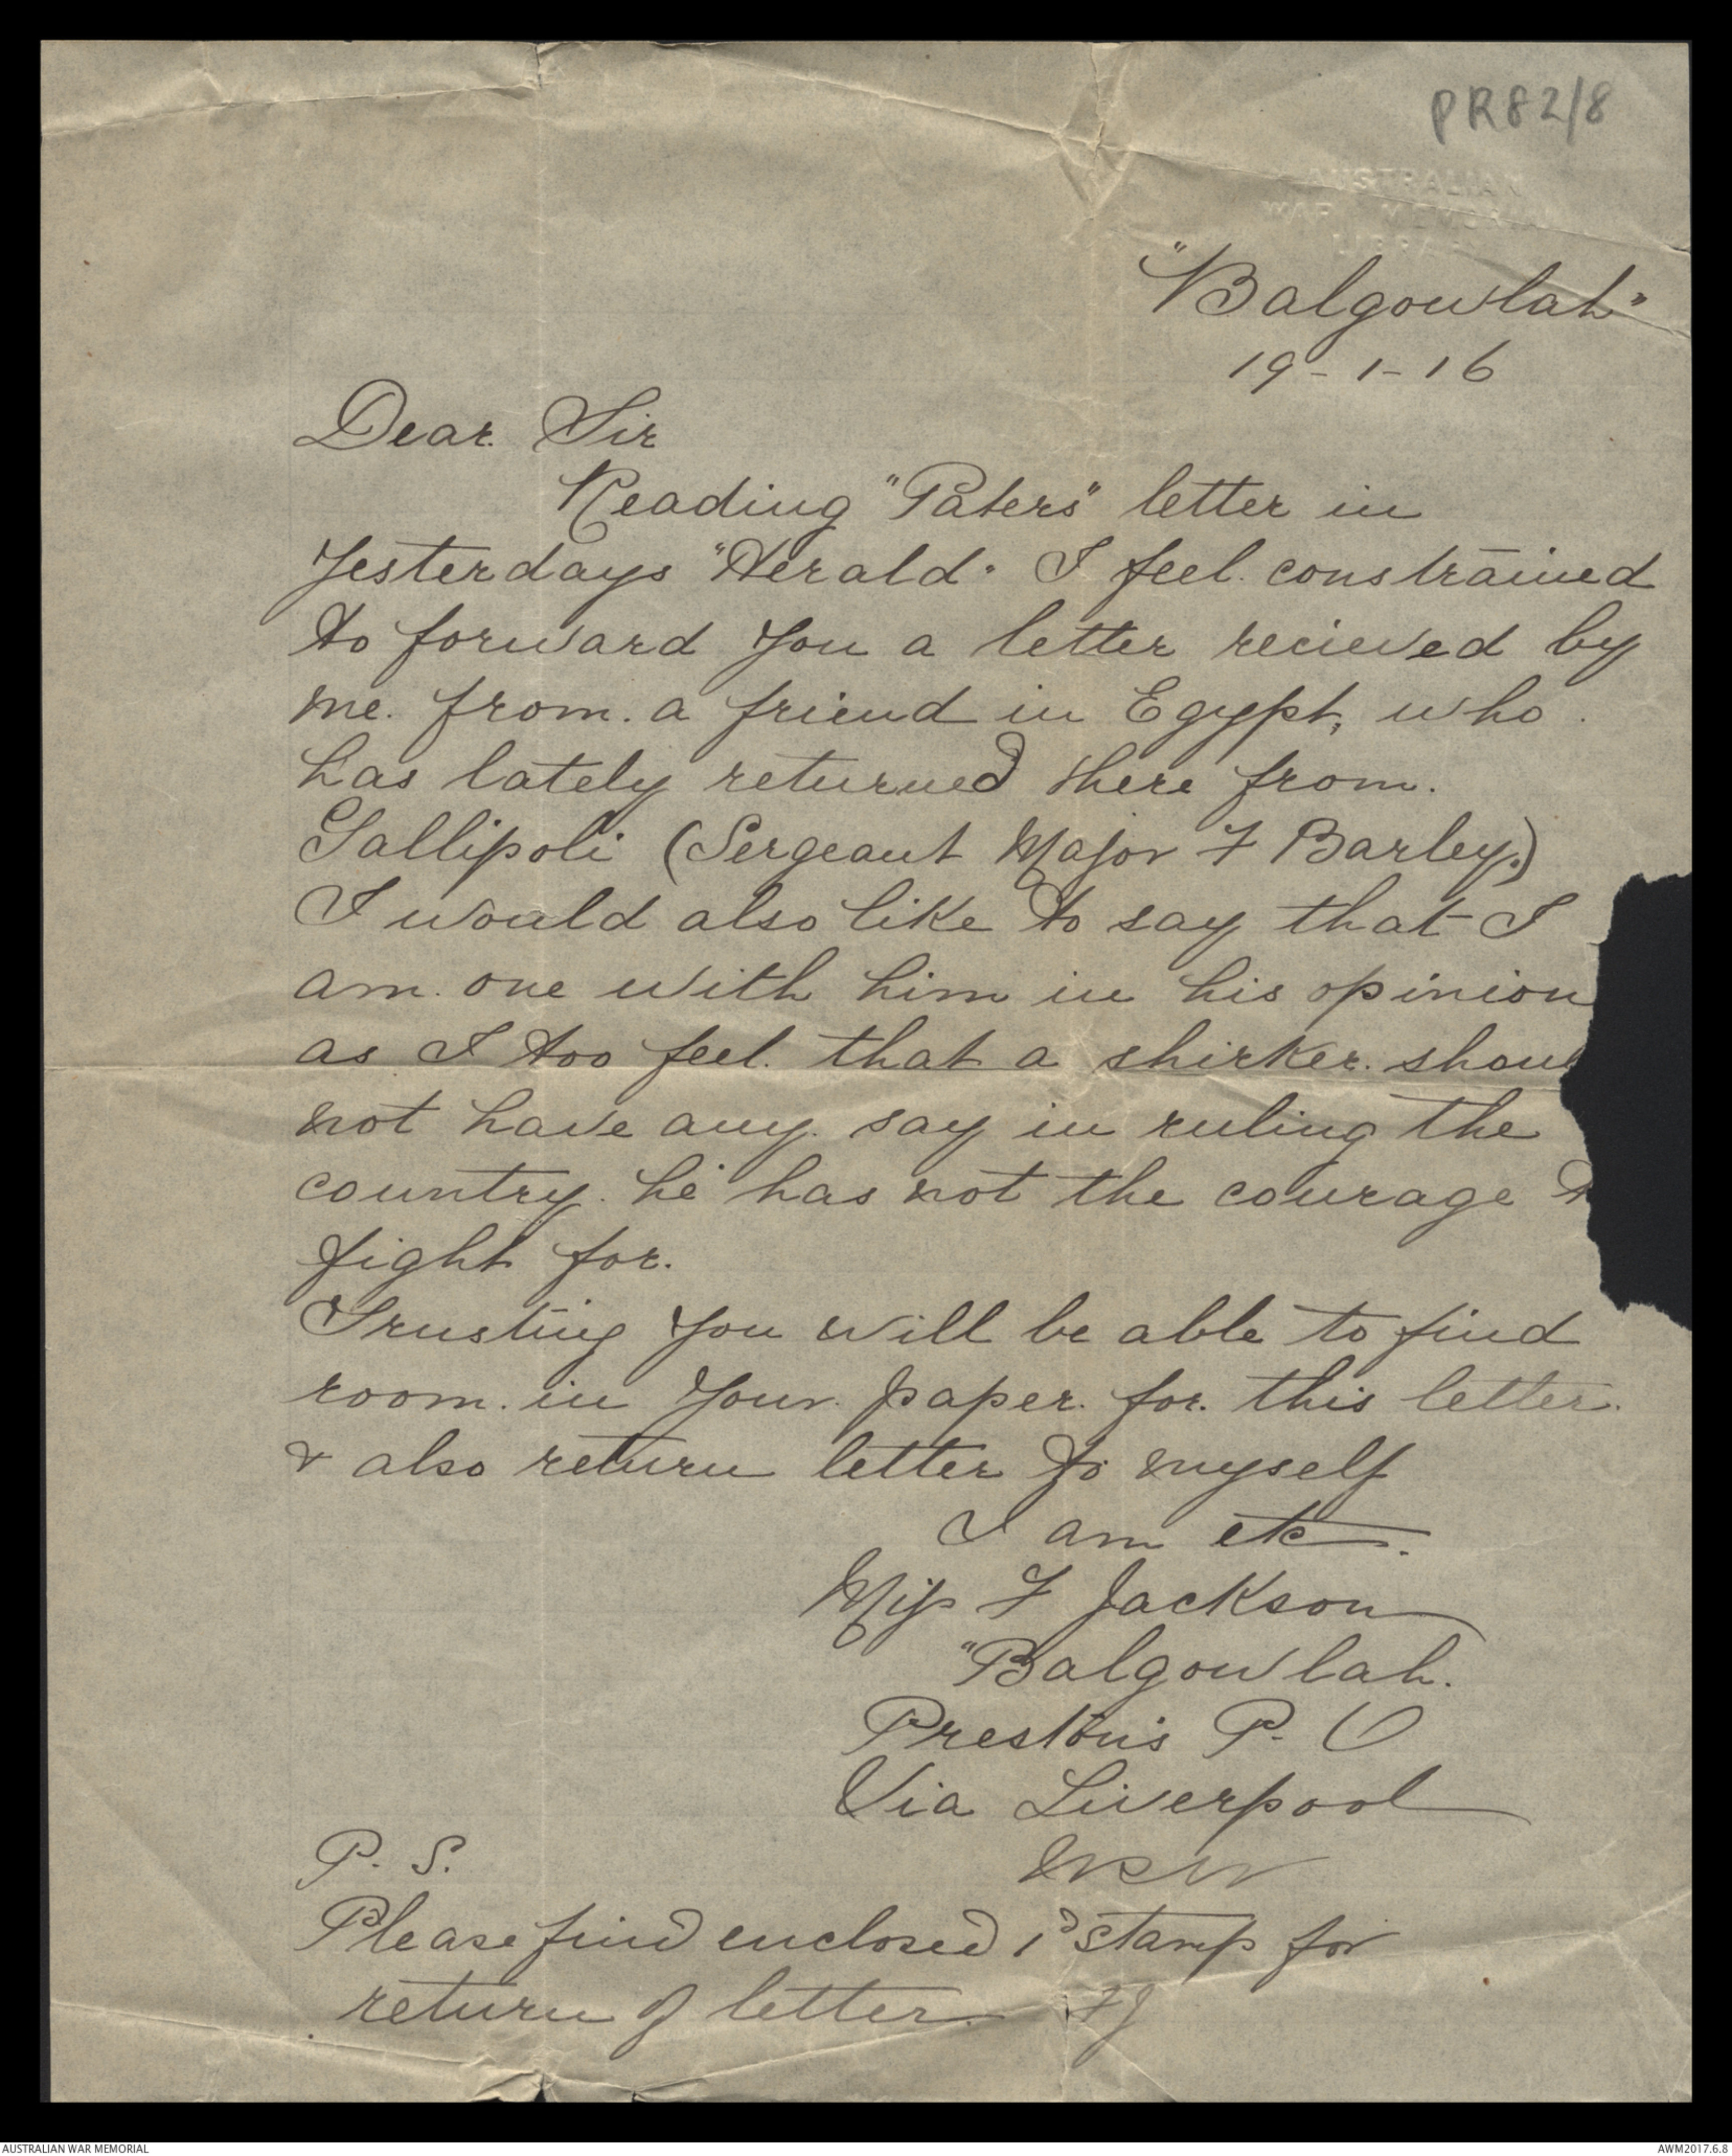 PR82/8
AUSTRALIAN
WAR MEMORIAL
LIBRARY
"Balgowlah"
19-1-16
Dear Sir
Reading "Paters" letter in
Yesterdays "Herald" I feel constrained
to forward You a letter recieved by
me. from. a friend in Egypt, who
has lately returned there from.
Gallipoli (Sergeant Major F Barley.)
I would also like to say that I
am. one with him in his opinion
as I too feel. that a shirker. shoul
not have any. say in ruling the
country. he has not the courage t
fight for.
Trusting You will be able to find
room. in Your. paper. for. this letter.
& also return letter to myself
I am etc.
Miss F Jackson
"Balgowlah.
Preston's P. O
Via Liverpool
NSW
P. S.
Please find enclosed 1d stamp for
return of letter. FJ
AUSTRALIAN WAR MEMORIAL
AWM2017.6.8